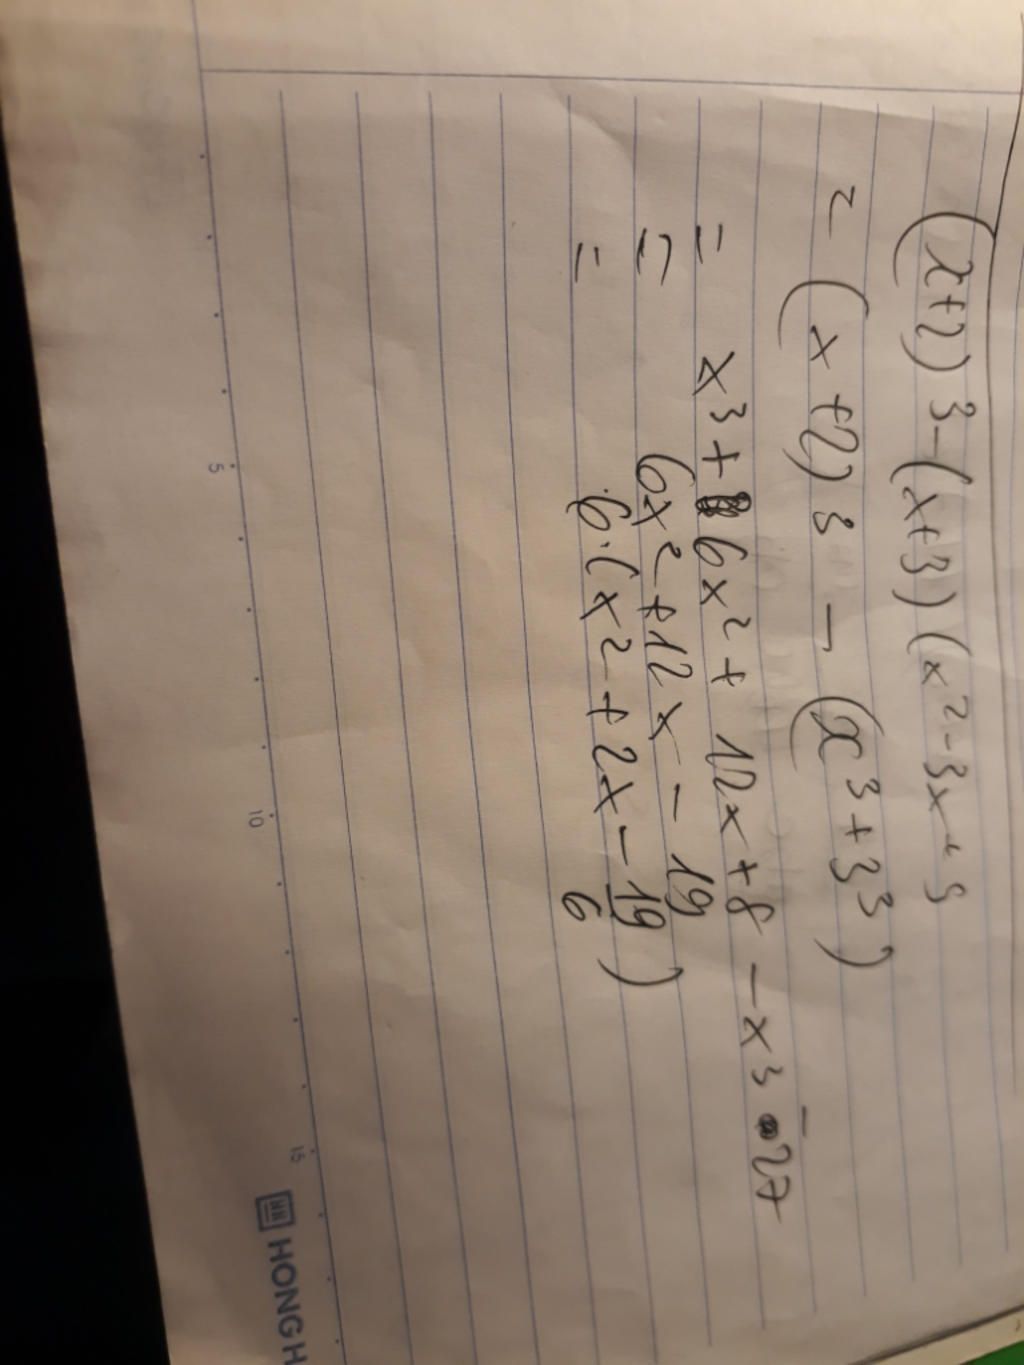 (x+2)3-(x+3)(x²-3x+9
= (x+2)3 - (x³+3³)
= x³+6x²+12x+8-x3-27
= 6x²+12x-19
= 6.(x²+2x-19/6)
5
10
15
HONG H